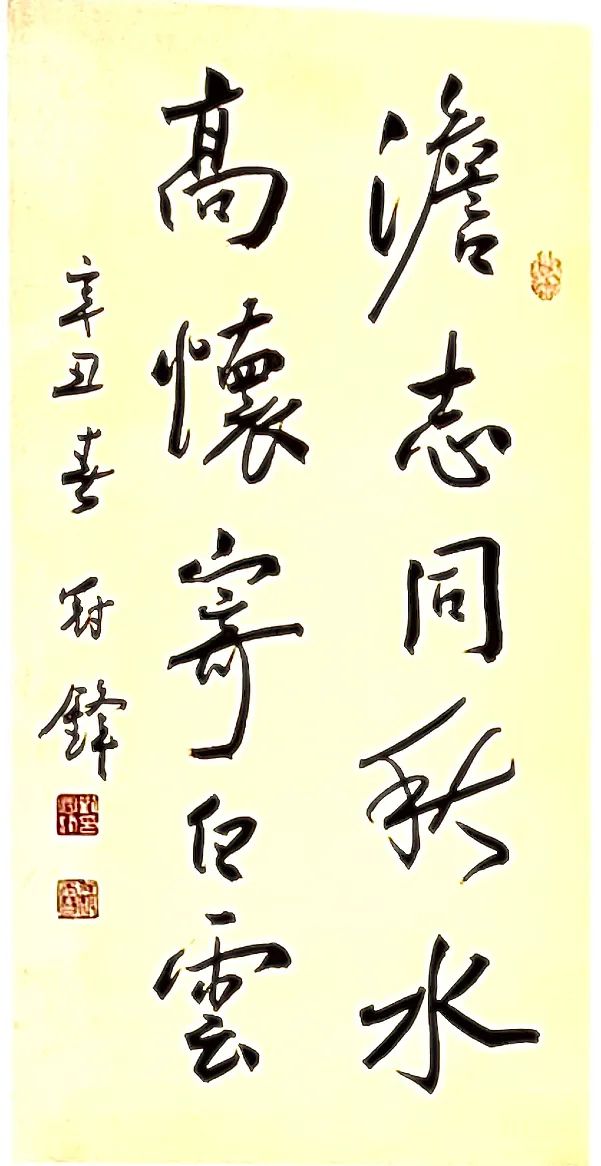 澹志同秋水
高懷寄白雲
辛丑春 冠鋒